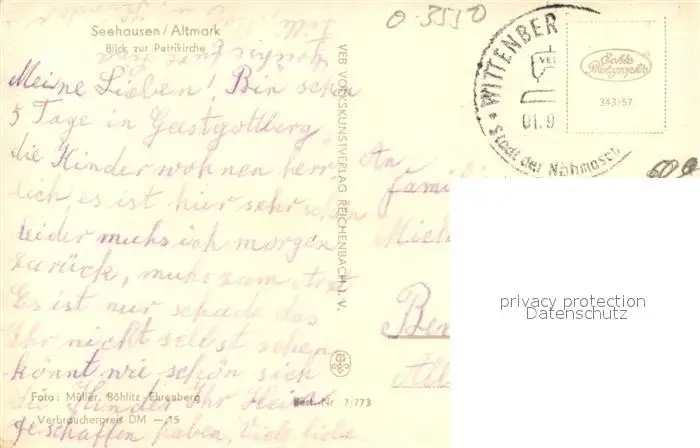 O-3550
Seehausen / Altmark
Blick zur Petrikirche
Meine Lieben! Bin schon
5 Tage in Geestgottberg
die Kinder wohnen herr
lich, es ist hier sehr schön
leider muhs ich morgen
zurück, muhs zum Arzt
Es ist nur schade das
Ihr nicht selbst sehen
könnt wie schön sich
die Kinder Ihr Heim
geschaffen haben. Viele liebe
Foto: Müller, Böhlitz-Ehrenberg
Best.-Nr. 7/773
Verbraucherpreis DM —.15
VEB VOLKSKUNSTVERLAG REICHENBACH i. V.
WITTENBER
01.9
Stadt der Nähmasch
Echte
Photographie
343/57
An
Famili
Mich
privacy protection
Datenschutz